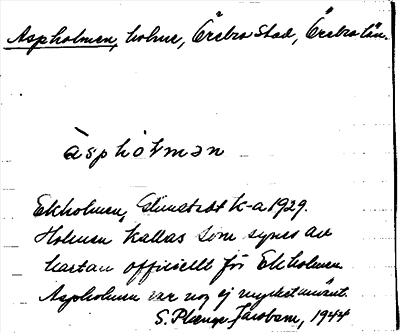 Aspholmen, holme, Örebro stad, Örebro län.
àsphòlmən
Ekholmen, Almstedt k-a 1929.
Holmen kallas som synes av
kartan officiellt för Ekholmen.
Aspholmen var nog ej mycket använt.
S. Plænge Jacobson, 1944